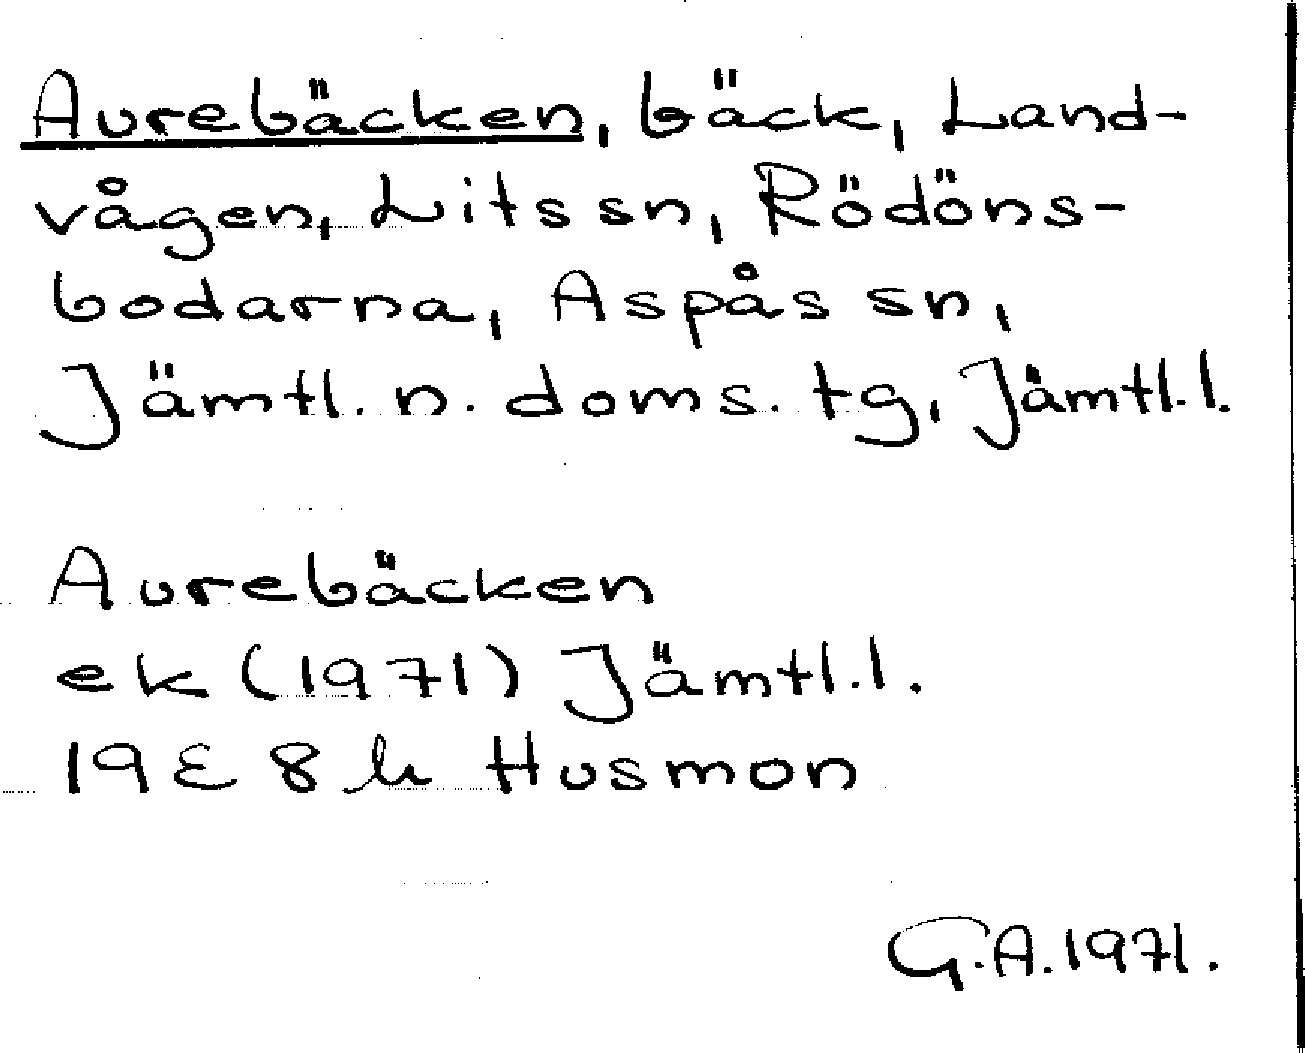 Aurebäcken, bäck, Land-
vågen, Lits sn, Rödöns-
bodarna, Aspås sn,
Jämtl. n. doms. tg, Jämtl. l.
Aurebäcken
ek (1971) Jämtl. l.
19E 8h Husmon
G.A. 1971.